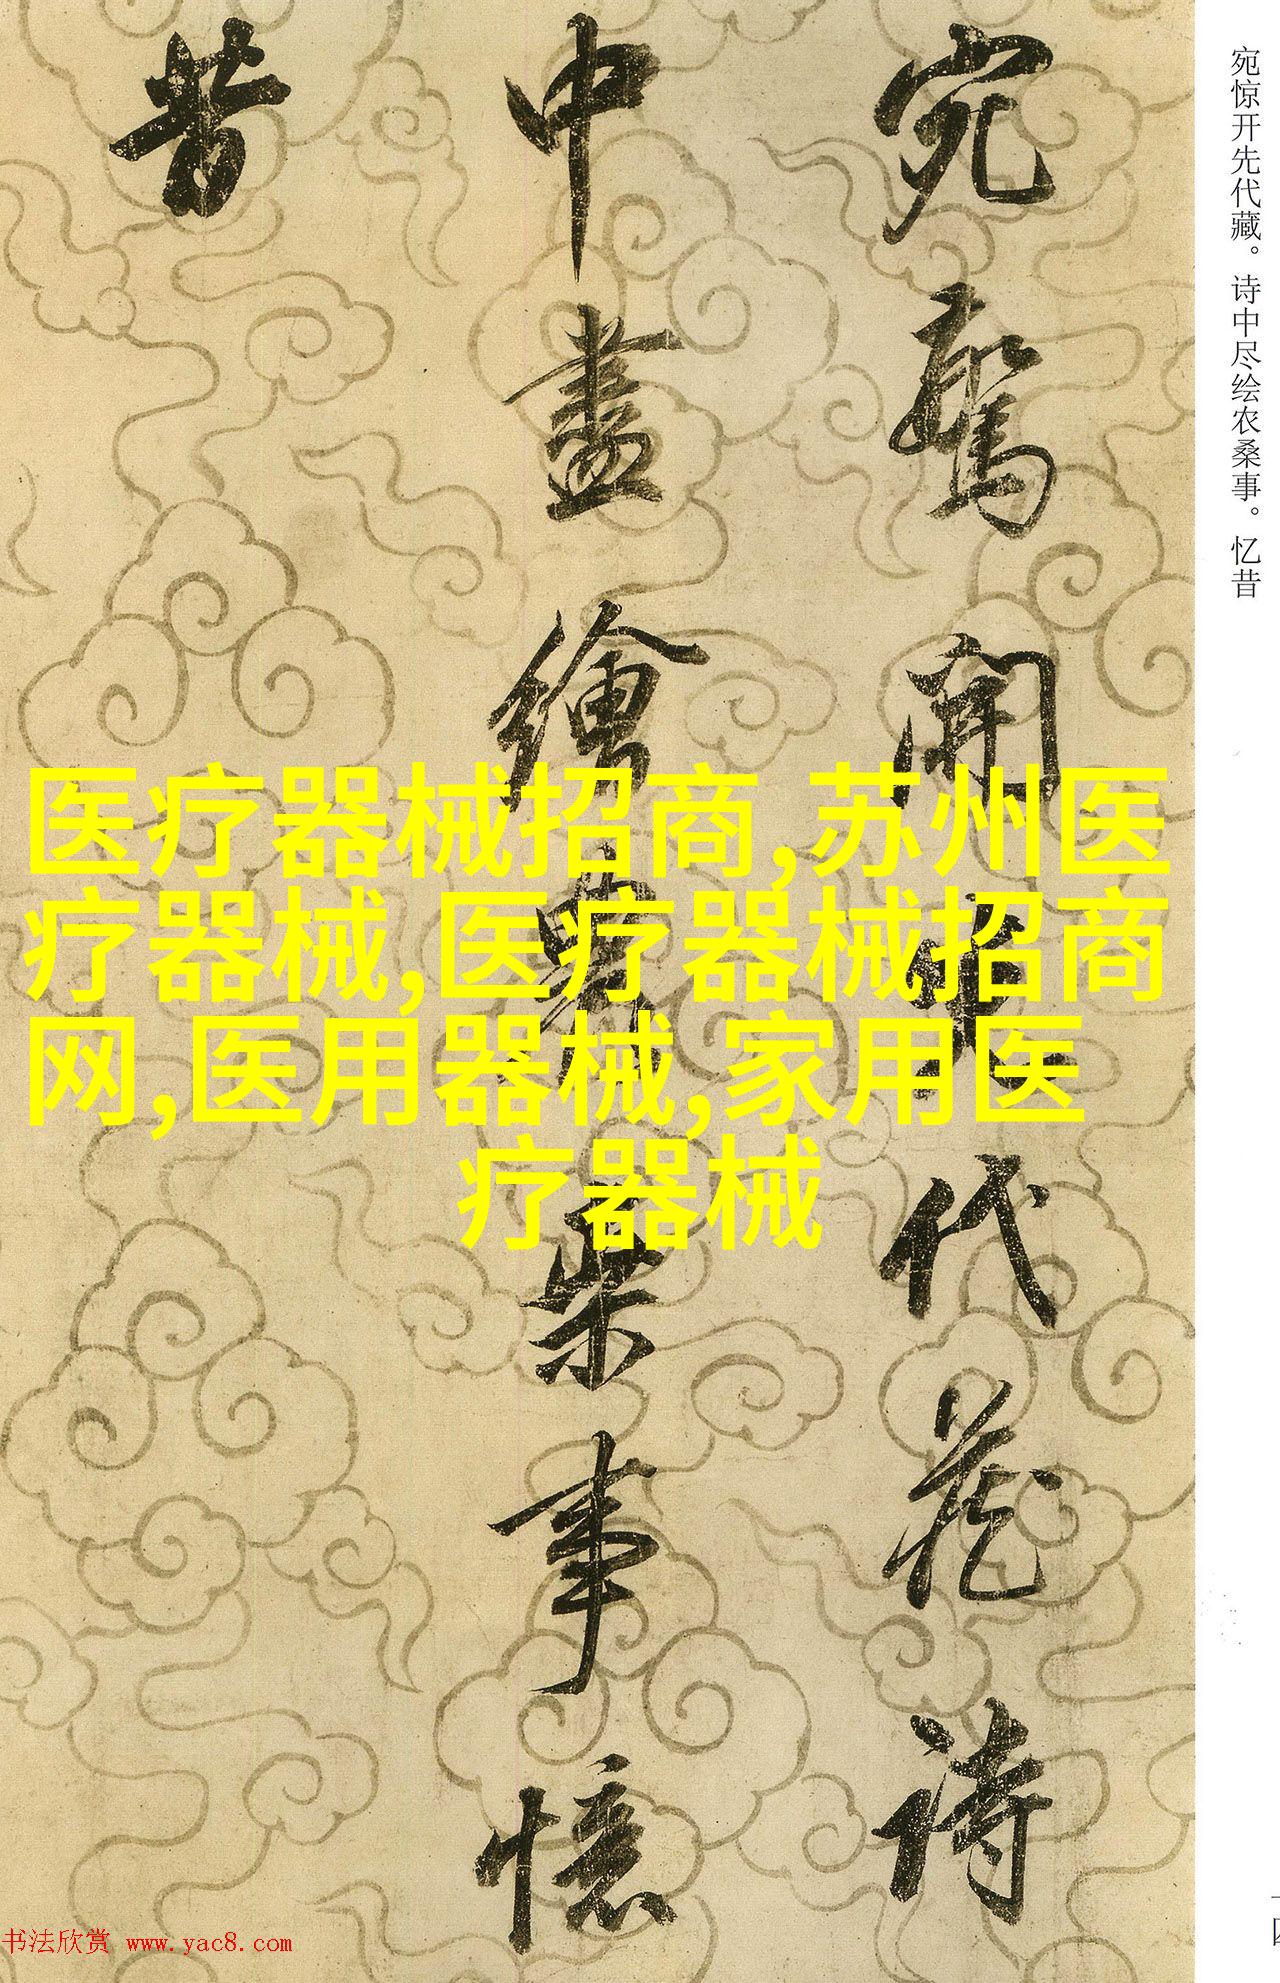 宛驚開先代藏詩
中盡繪農桒事憶
昔
宛惊开先代藏。诗中尽绘农桑事。忆昔
医疗器械招商,苏州医
疗器械,医疗器械招商
网,医用器械,家用医
疗器械
书法欣赏 www.yac8.com